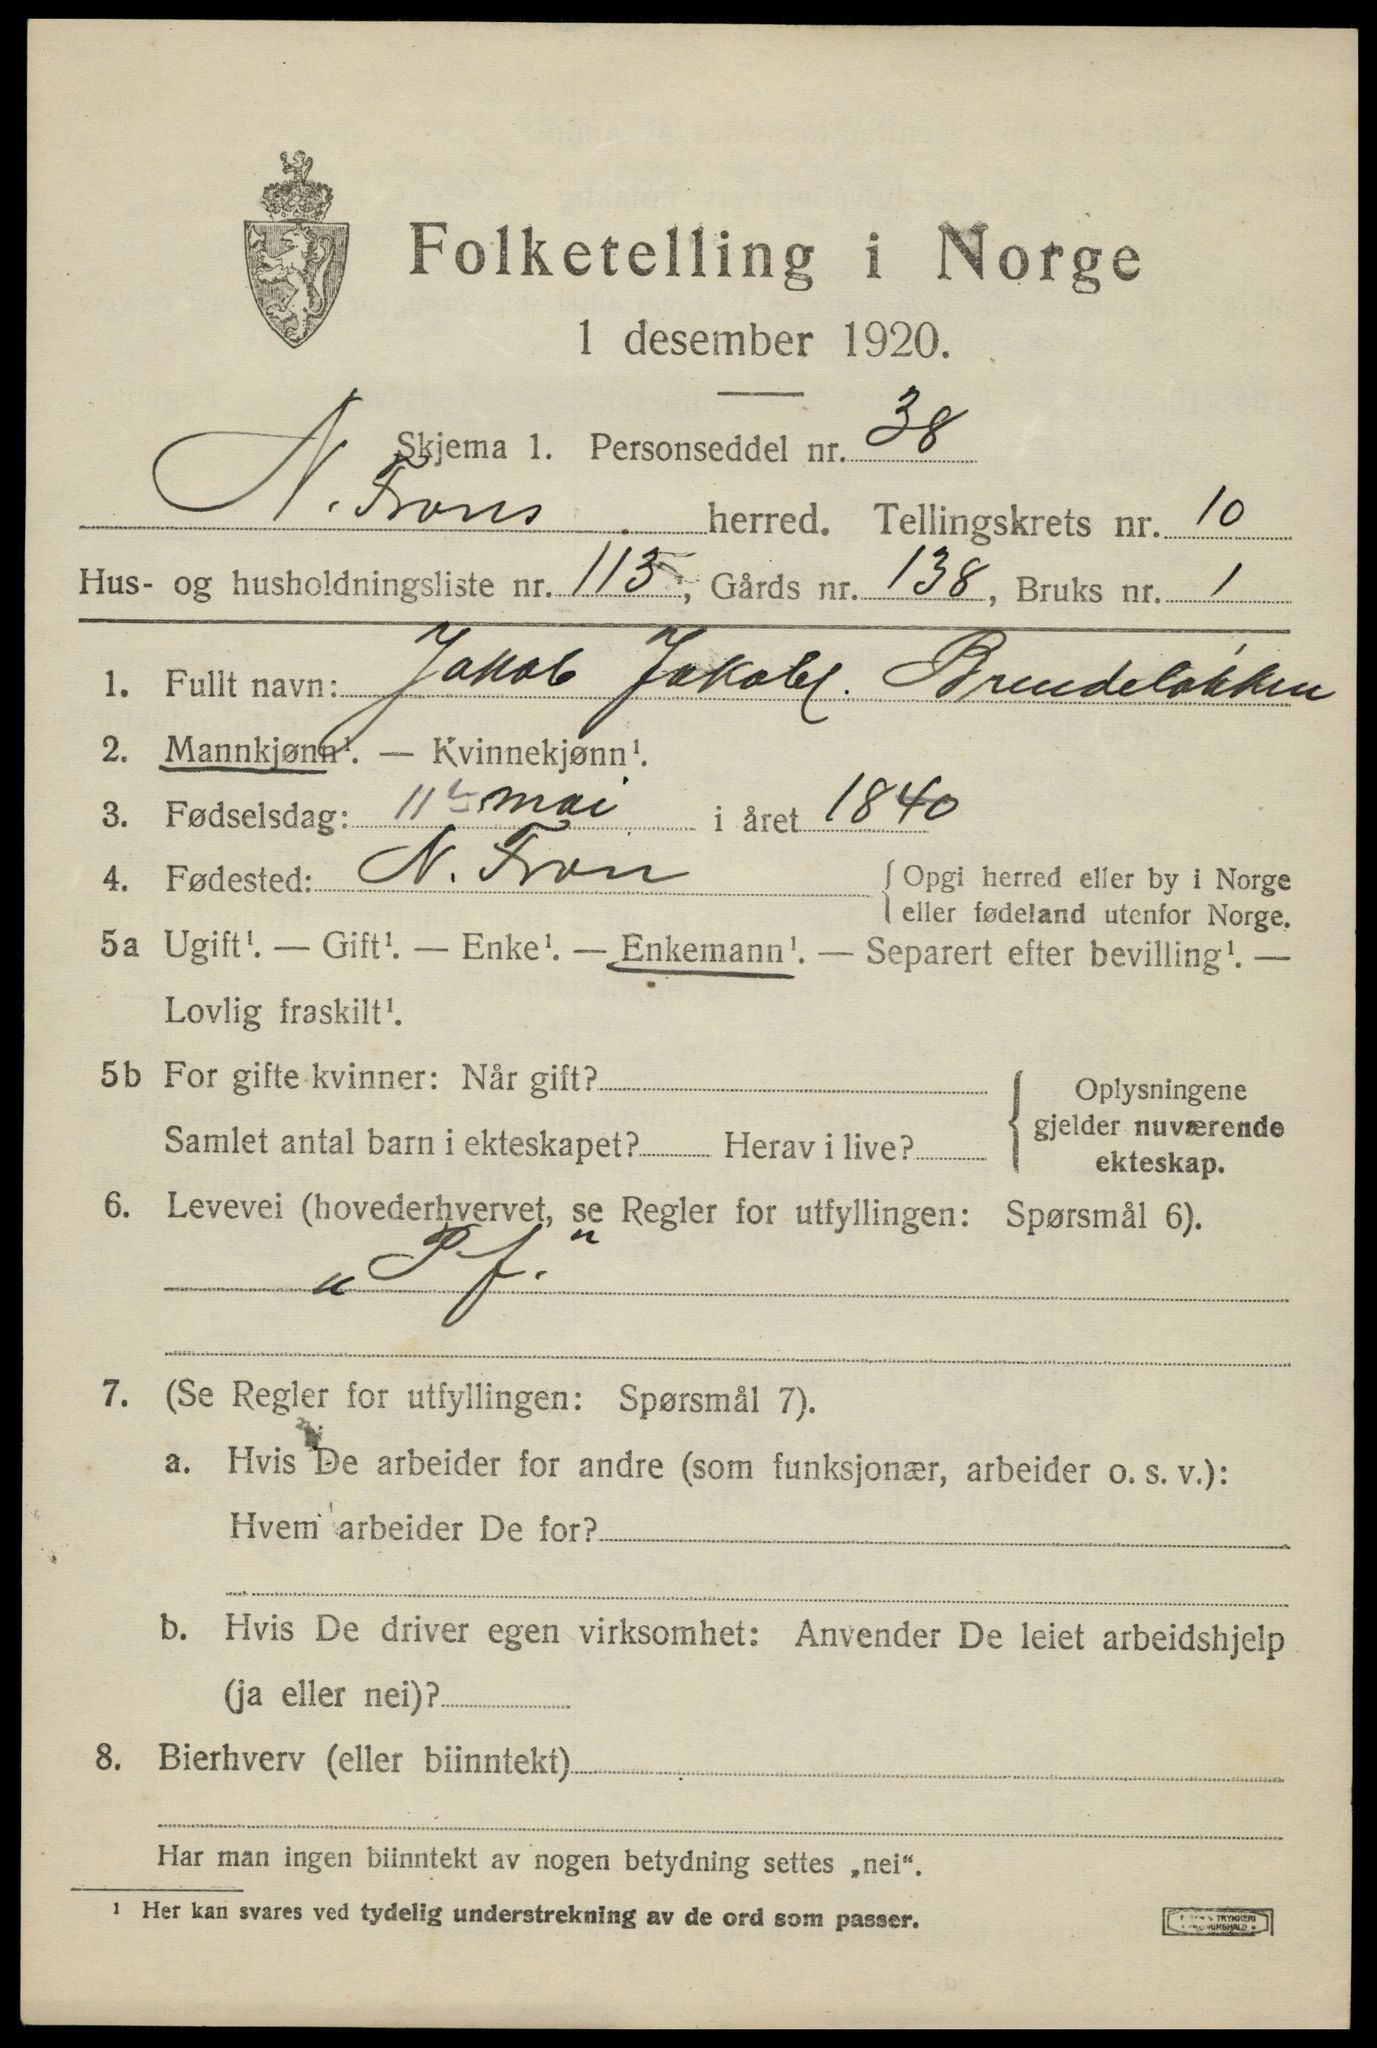 Folketelling i Norge
1 desember 1920.
Skjema 1. Personseddel nr. 38
N. Frons herred. Tellingskrets nr. 10
Hus- og husholdningsliste nr. 113, Gårds nr. 138, Bruks nr. 1
1. Fullt navn: Jakob Jakobs. Brendeløkken
2. Mannkjønn¹. — Kvinnekjønn¹.
3. Fødselsdag: 11te mai i året 1840
4. Fødested: N. Fron { Opgi herred eller by i Norge
eller fødeland utenfor Norge.
5a Ugift¹. — Gift¹. — Enke¹. — Enkemann¹. — Separert efter bevilling¹. —
Lovlig fraskilt¹.
5b For gifte kvinner: Når gift?
Samlet antal barn i ekteskapet? Herav i live?
{ Oplysningene
gjelder nuværende
ekteskap.
6. Levevei (hovederhvervet, se Regler for utfyllingen: Spørsmål 6).
„P f."
7. (Se Regler for utfyllingen: Spørsmål 7).
a. Hvis De arbeider for andre (som funksjonær, arbeider o. s. v.):
Hvem arbeider De for?
b. Hvis De driver egen virksomhet: Anvender De leiet arbeidshjelp
(ja eller nei)?
8. Bierhverv (eller biinntekt)
Har man ingen biinntekt av nogen betydning settes „nei“.
¹ Her kan svares ved tydelig understrekning av de ord som passer.
TRYKKERI